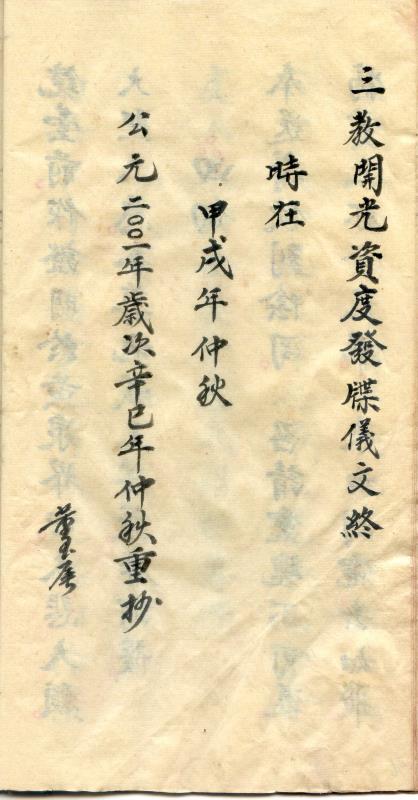 三教開光資度發牒儀文終
時在
甲戌年仲秋
公元二○○一年歲次辛巳年仲秋重抄